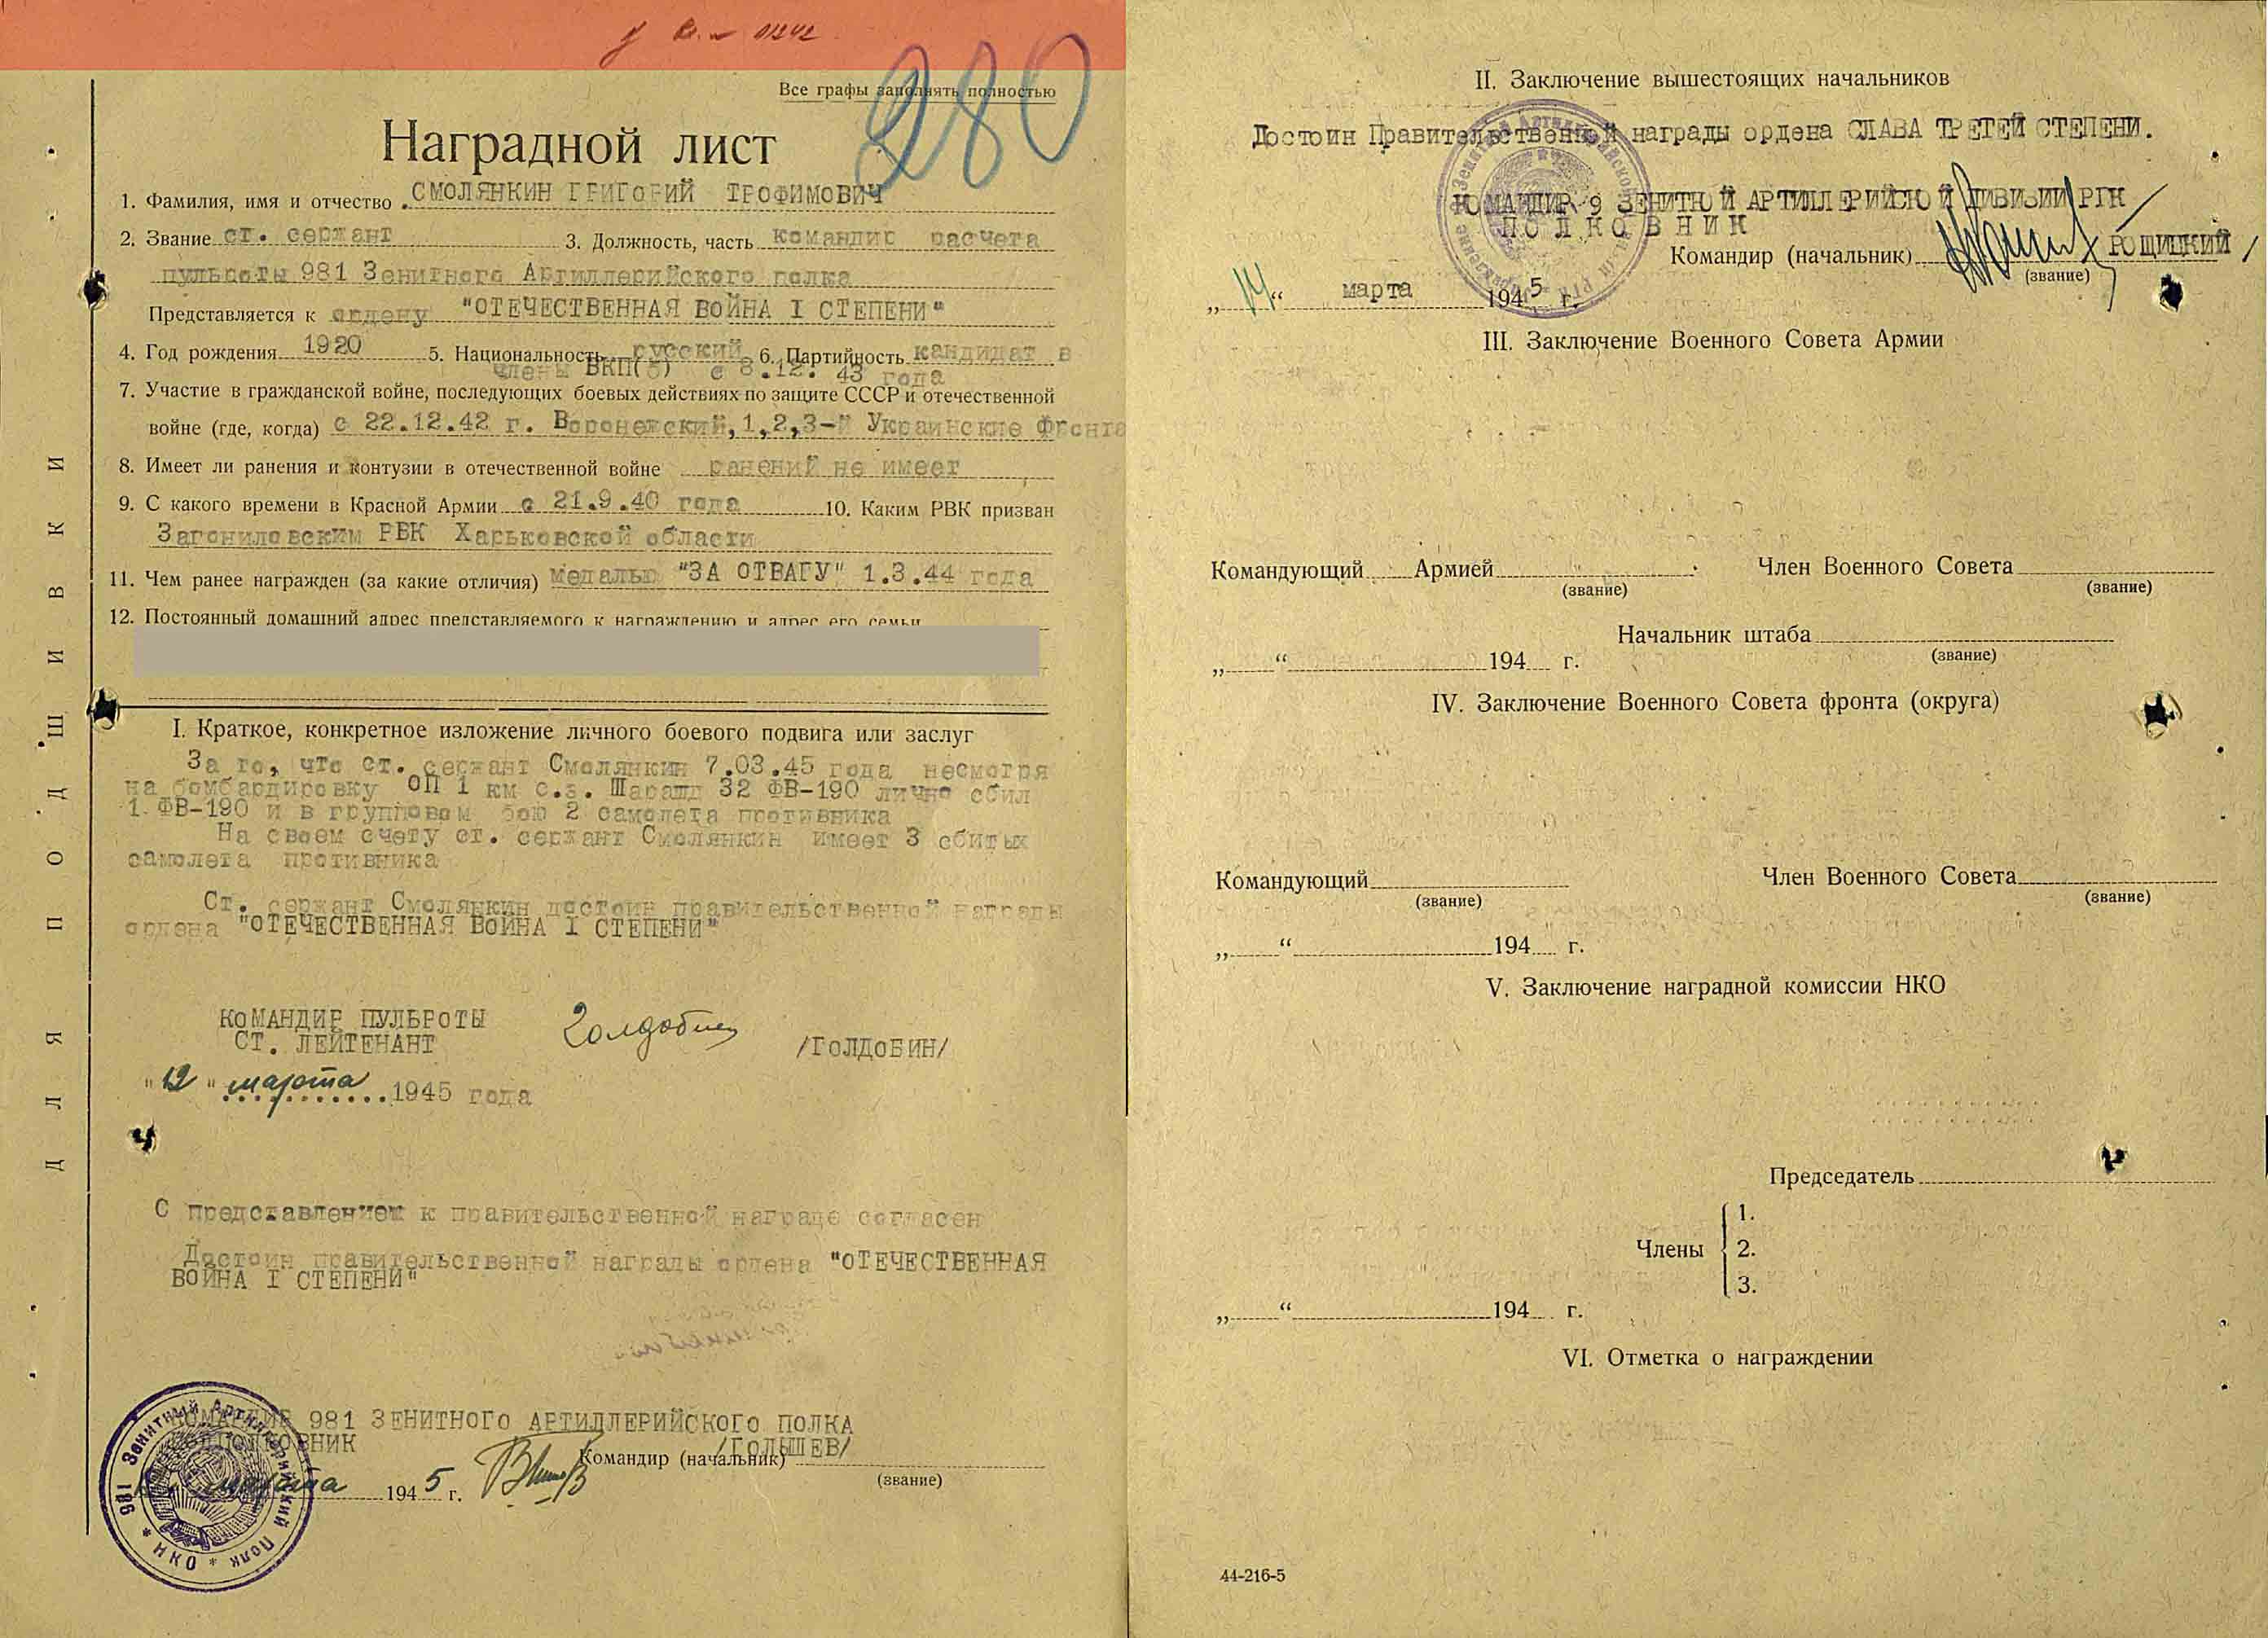 280
Все графы заполнять полностью
Наградной лист
1. Фамилия, имя и отчество СМОЛЯНКИН ГРИГОРИЙ ТРОФИМОВИЧ
2. Звание ст. сержант 3. Должность, часть командир расчета
пульроты 981 Зенитного Артиллерийского полка
Представляется к ордену "ОТЕЧЕСТВЕННАЯ ВОЙНА I СТЕПЕНИ"
4. Год рождения 1920 5. Национальность русский 6. Партийность кандидат в
члены ВКП(б) с 8.12. 43 года
7. Участие в гражданской войне, последующих боевых действиях по защите СССР и отечественной
войне (где, когда) с 22.12.42 г. Воронежский,1,2,3-й Украинские Фронта
8. Имеет ли ранения и контузии в отечественной войне ранений не имеет
9. С какого времени в Красной Армии с 21.9.40 года 10. Каким РВК призван
РВК Харьковской области
11. Чем ранее награжден (за какие отличия) медалью "ЗА ОТВАГУ" 1.3.44 года
12. Постоянный домашний адрес представляемого к награждению и адрес его семьи
I. Краткое, конкретное изложение личного боевого подвига или заслуг
За то, что ст. сержант Смолянкин 7.03.45 года несмотря
на бомбардировку ОП 1 км с.з. Шарашд 32 ФВ-190 лично сбил
1 ФВ-190 и в групповом бою 2 самолета противника
На своем счету ст. сержант Смолянкин имеет 3 сбитых
самолета противника
Ст. сержант Смолянкин достоин правительственной награды
ордена "ОТЕЧЕСТВЕННАЯ ВОЙНА I СТЕПЕНИ"
КОМАНДИР ПУЛЬРОТЫ
СТ. ЛЕЙТЕНАНТ Голдобин /ГОЛДОБИН/
"12" марта 1945 года
С представлением к правительственной награде согласен
Достоин правительственной награды ордена "ОТЕЧЕСТВЕННАЯ
ВОЙНА I СТЕПЕНИ"
КОМАНДИР 981 ЗЕНИТНОГО АРТИЛЛЕРИЙСКОГО ПОЛКА
ПОДПОЛКОВНИК /ГОЛЫШЕВ/
Командир (начальник)
(звание)
марта 1945 г.
981 Зенитный Артиллерийский Полк * НКО *
ДЛЯ ПОДШИВКИ
II. Заключение вышестоящих начальников
Достоин Правительственной награды ордена СЛАВА ТРЕТЕЙ СТЕПЕНИ.
КОМАНДИР 9 ЗЕНИТНОЙ АРТИЛЛЕРИЙСКОЙ ДИВИЗИИ РГК
ПОЛКОВНИК
Командир (начальник) /РОЩИЦКИЙ/
(звание)
„14“ марта 1945 г.
III. Заключение Военного Совета Армии
Командующий Армией Член Военного Совета
(звание) (звание)
Начальник штаба
(звание)
„ “ 194 г.
IV. Заключение Военного Совета фронта (округа)
Командующий Член Военного Совета
(звание) (звание)
„ “ 194 г.
V. Заключение наградной комиссии НКО
Председатель
Члены
1.
2.
3.
„ “ 194 г.
VI. Отметка о награждении
44-216-5